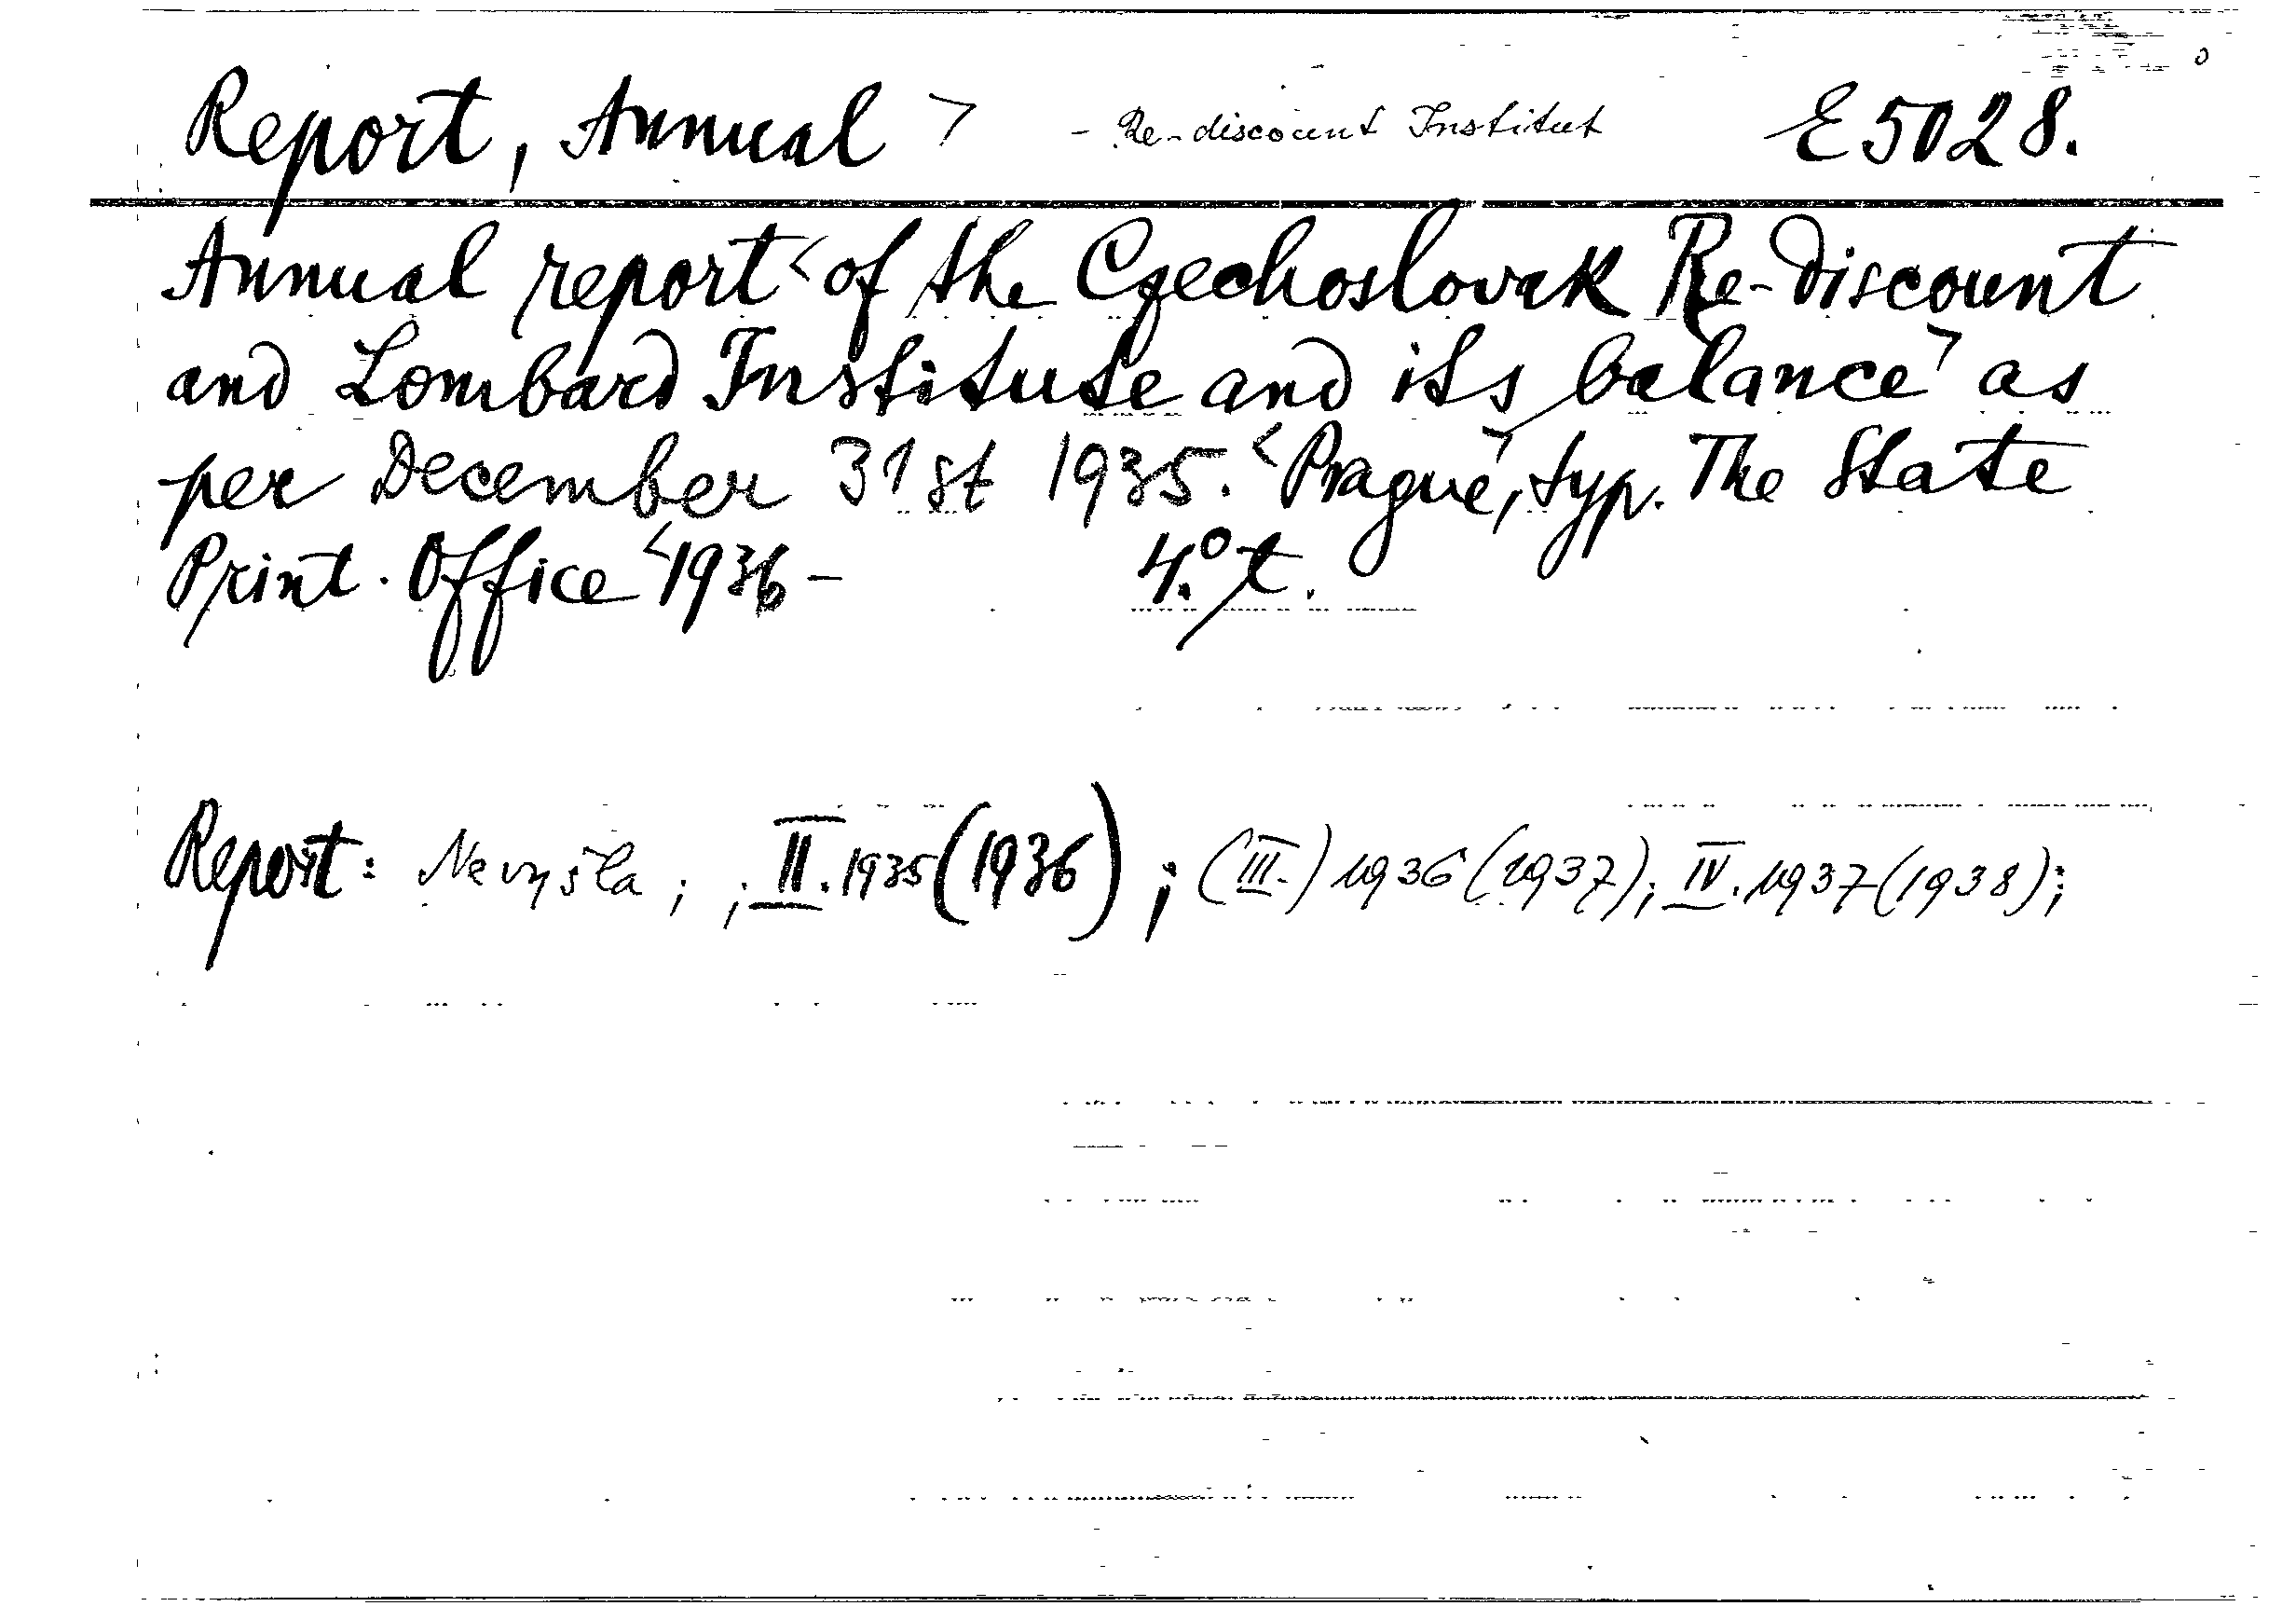 Report, Annual > - Re-discount Institut E 5028.
Annual report < of the Czechoslovak Re-discount
and Lombard Institute and its balance > as
per December 31st 1935. < Prague >, typ. The State
Print. Office < 1936 - 4.° t.
Report: Nevyšla ; ; II. 1935 (1936) ; (III.) 1936 (1937); IV. 1937 (1938);